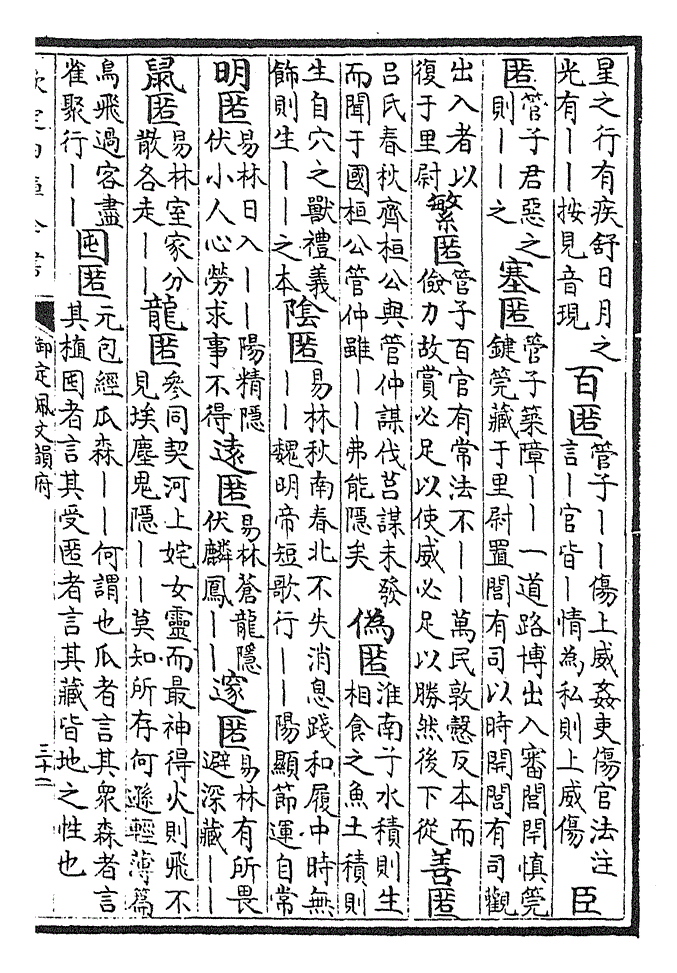 星之行有疾舒日月之
光有丨丨按見音現
百匿
管子丨丨傷上威姦吏傷官法注
言丨官皆丨情為私則上威傷
臣
匿
管子君惡之
則丨丨之
塞匿
管子築障丨丨一道路博出入審閭閈慎筦
鍵筦藏于里尉置閭有司以時開閭有司觀
出入者以
復于里尉
繁匿
管子百官有常法不丨丨萬民敦慤反本而
儉力故賞必足以使威必足以勝然後下從
善匿
呂氏春秋齊桓公與管仲謀伐莒謀未發
而聞于國桓公管仲雖丨丨弗能隱矣
偽匿
淮南子水積則生
相食之魚土積則
生自穴之獸禮義
飾則生丨丨之本
陰匿
易林秋南春北不失消息踐和履中時無
丨丨魏明帝短歌行丨丨陽顯節運自常
明匿
易林日入丨丨陽精隱
伏小人心勞求事不得
遠匿
易林蒼龍隱
伏麟鳳丨丨
邃匿
易林有所畏
避深藏丨丨
鼠匿
易林室家分
散各走丨丨
龍匿
參同契河上姹女靈而最神得火則飛不
見埃塵鬼隱丨丨莫知所存何遜輕薄篇
鳥飛過客盡
雀聚行丨丨
囤匿
元包經瓜森丨丨何謂也瓜者言其衆森者言
其植囤者言其受匿者言其藏皆地之性也
欽定四庫全書
御定佩文韻府
三十二